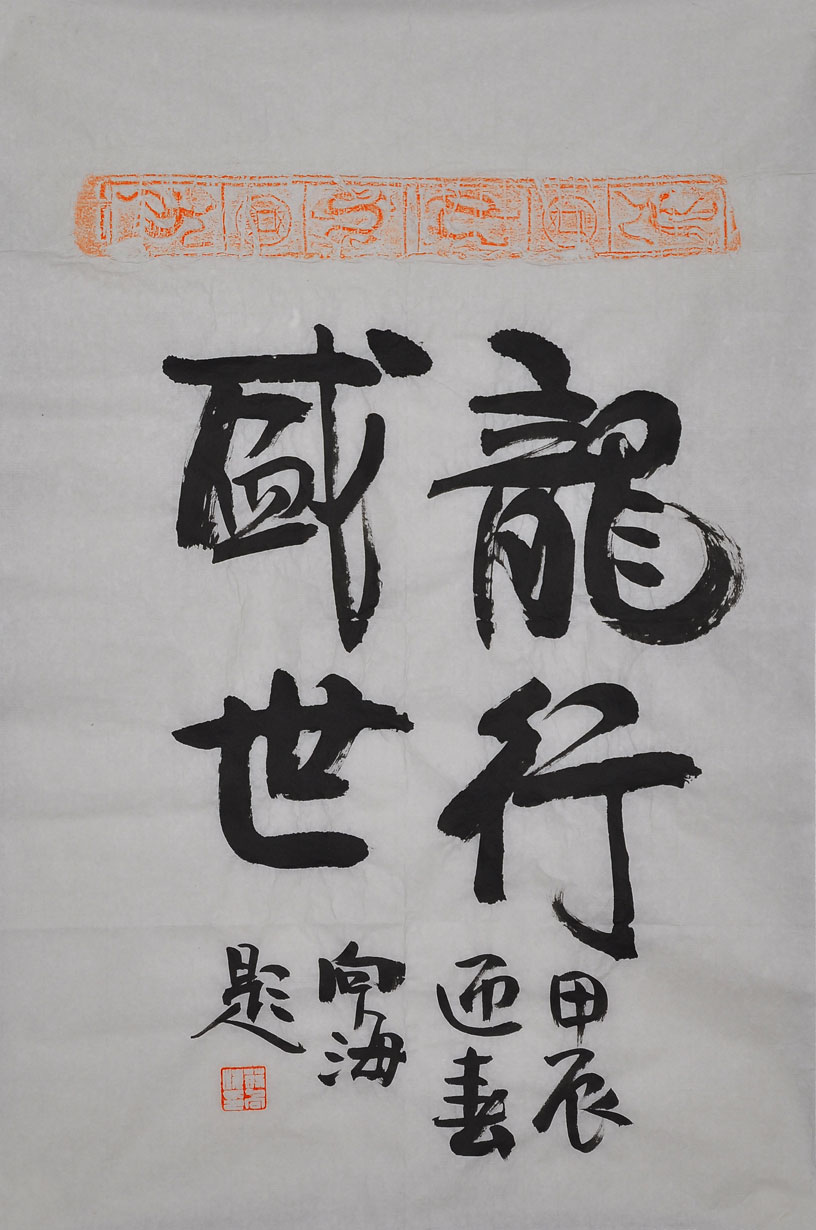 龍行
盛世
甲辰
迎春
向海
題